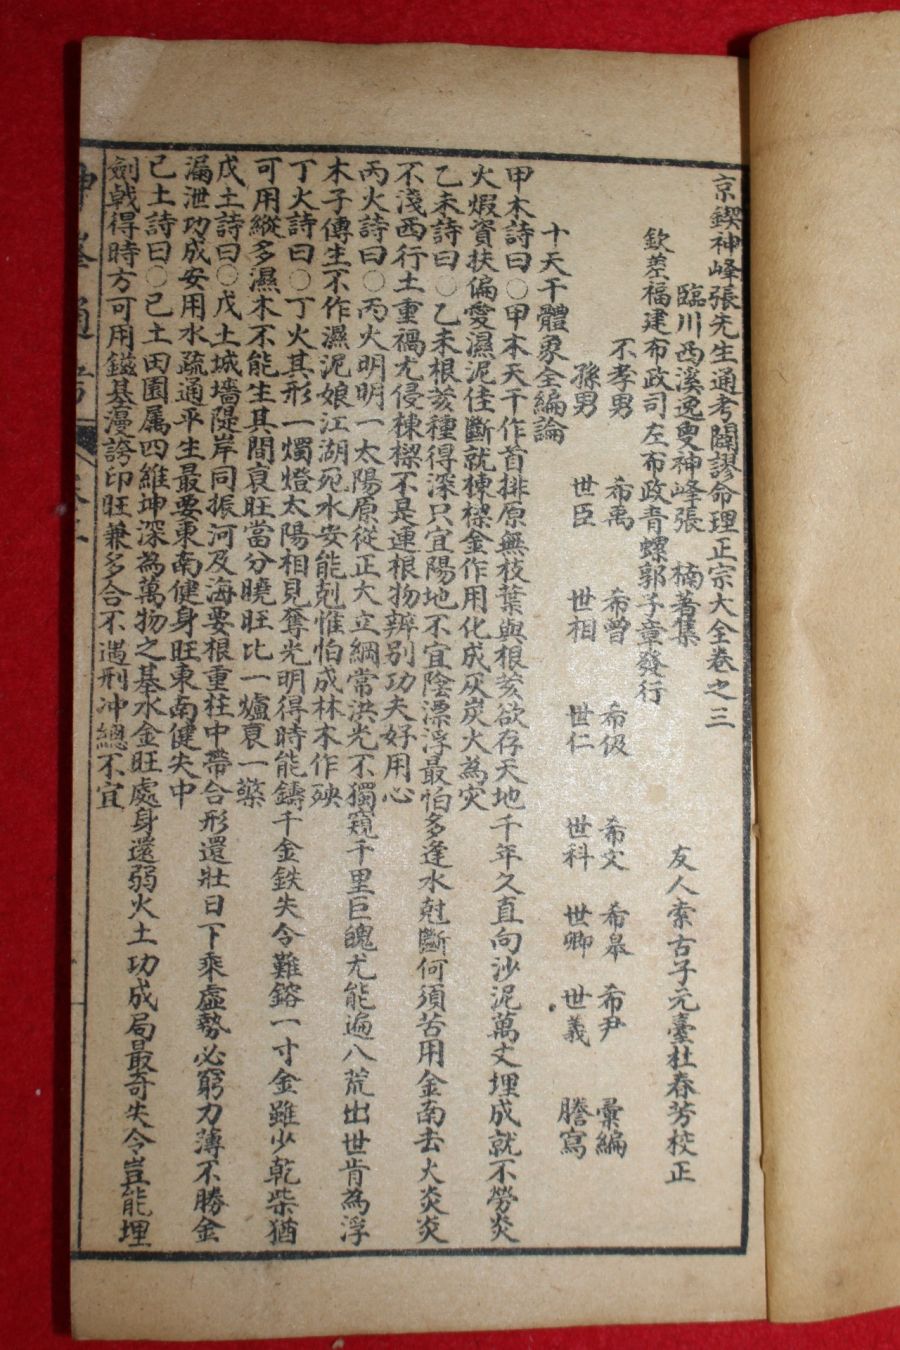 京鍥神峰張先生通考闢謬命理正宗大全卷之三
臨川西溪逸叟神峰張 楠著集 友人索古子元臺杜春芳校正
欽差福建布政司左布政青螺郭子章發行
不孝男 希禹 希曾 希伋 希文 希皋 希尹 彙編
孫男 世臣 世相 世仁 世科 世卿 世義 謄寫
十天干體象全編論
甲木詩曰○甲木天干作首排原無枝葉與根荄欲存天地千年久直向沙泥萬丈埋成就不勞炎
火煆資扶偏愛濕泥佳斷就棟樑金作用化成灰炭火為灾
乙未詩曰○乙未根荄種得深只宜陽地不宜陰漂浮最怕多逢水尅斷何須苦用金南去火炎炎
不淺西行土重禍尤侵棟樑不是連根物辨別功夫好用心
丙火詩曰○丙火明明一太陽原從正大立綱常洪光不獨窺千里巨魄尤能遍八荒出世肯為浮
木子傳生不作濕泥娘江湖死水安能剋惟怕成林木作殃
丁火詩曰○丁火其形一燭燈太陽相見奪光明得時能鑄千金鉄失令難鎔一寸金雖少乾柴猶
可用縱多濕木不能生其間衰旺當分曉旺比一爐衰一檠
戊土詩曰○戊土城墻隄岸同振河及海要根重柱中帶合形還壯日下乘虛勢必窮力薄不勝金
漏泄功成安用水疏通平生最要東南健身旺東南健失中
己土詩曰○己土田園属四維坤深為萬物之基水金旺處身還弱火土功成局最奇失令豈能埋
劍戟得時方可用鎡基漫誇印旺兼多合不遇刑冲總不宜